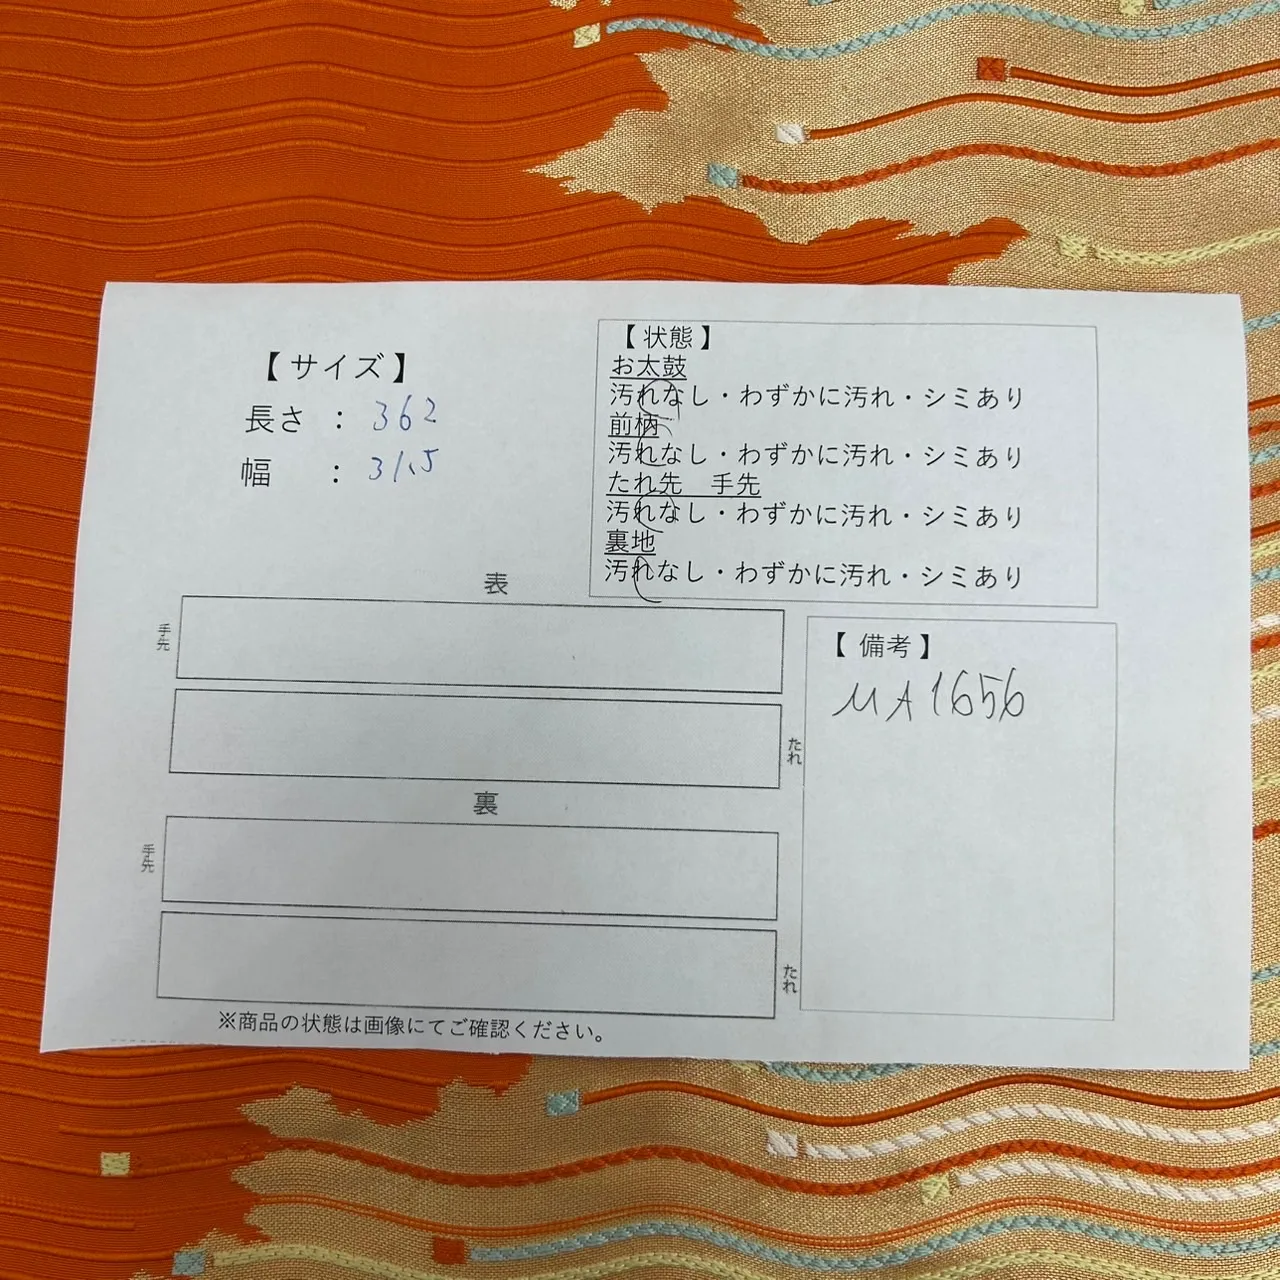 【サイズ】
長さ : 362
幅 : 31.5
【状態】
お太鼓
汚れなし・わずかに汚れ・シミあり
前柄
汚れなし・わずかに汚れ・シミあり
たれ先 手先
汚れなし・わずかに汚れ・シミあり
裏地
汚れなし・わずかに汚れ・シミあり
表
手先
たれ
裏
手先
たれ
【備考】
MA1656
※商品の状態は画像にてご確認ください。